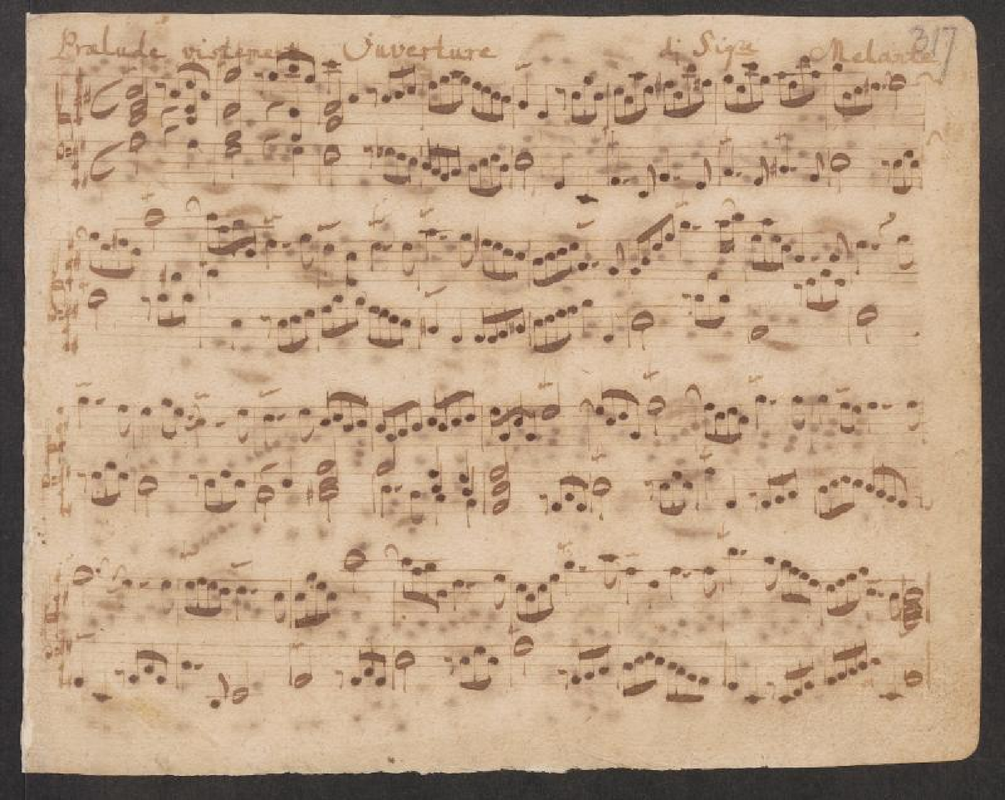 Prælude vistement Ouverture di Sigr Melante 317